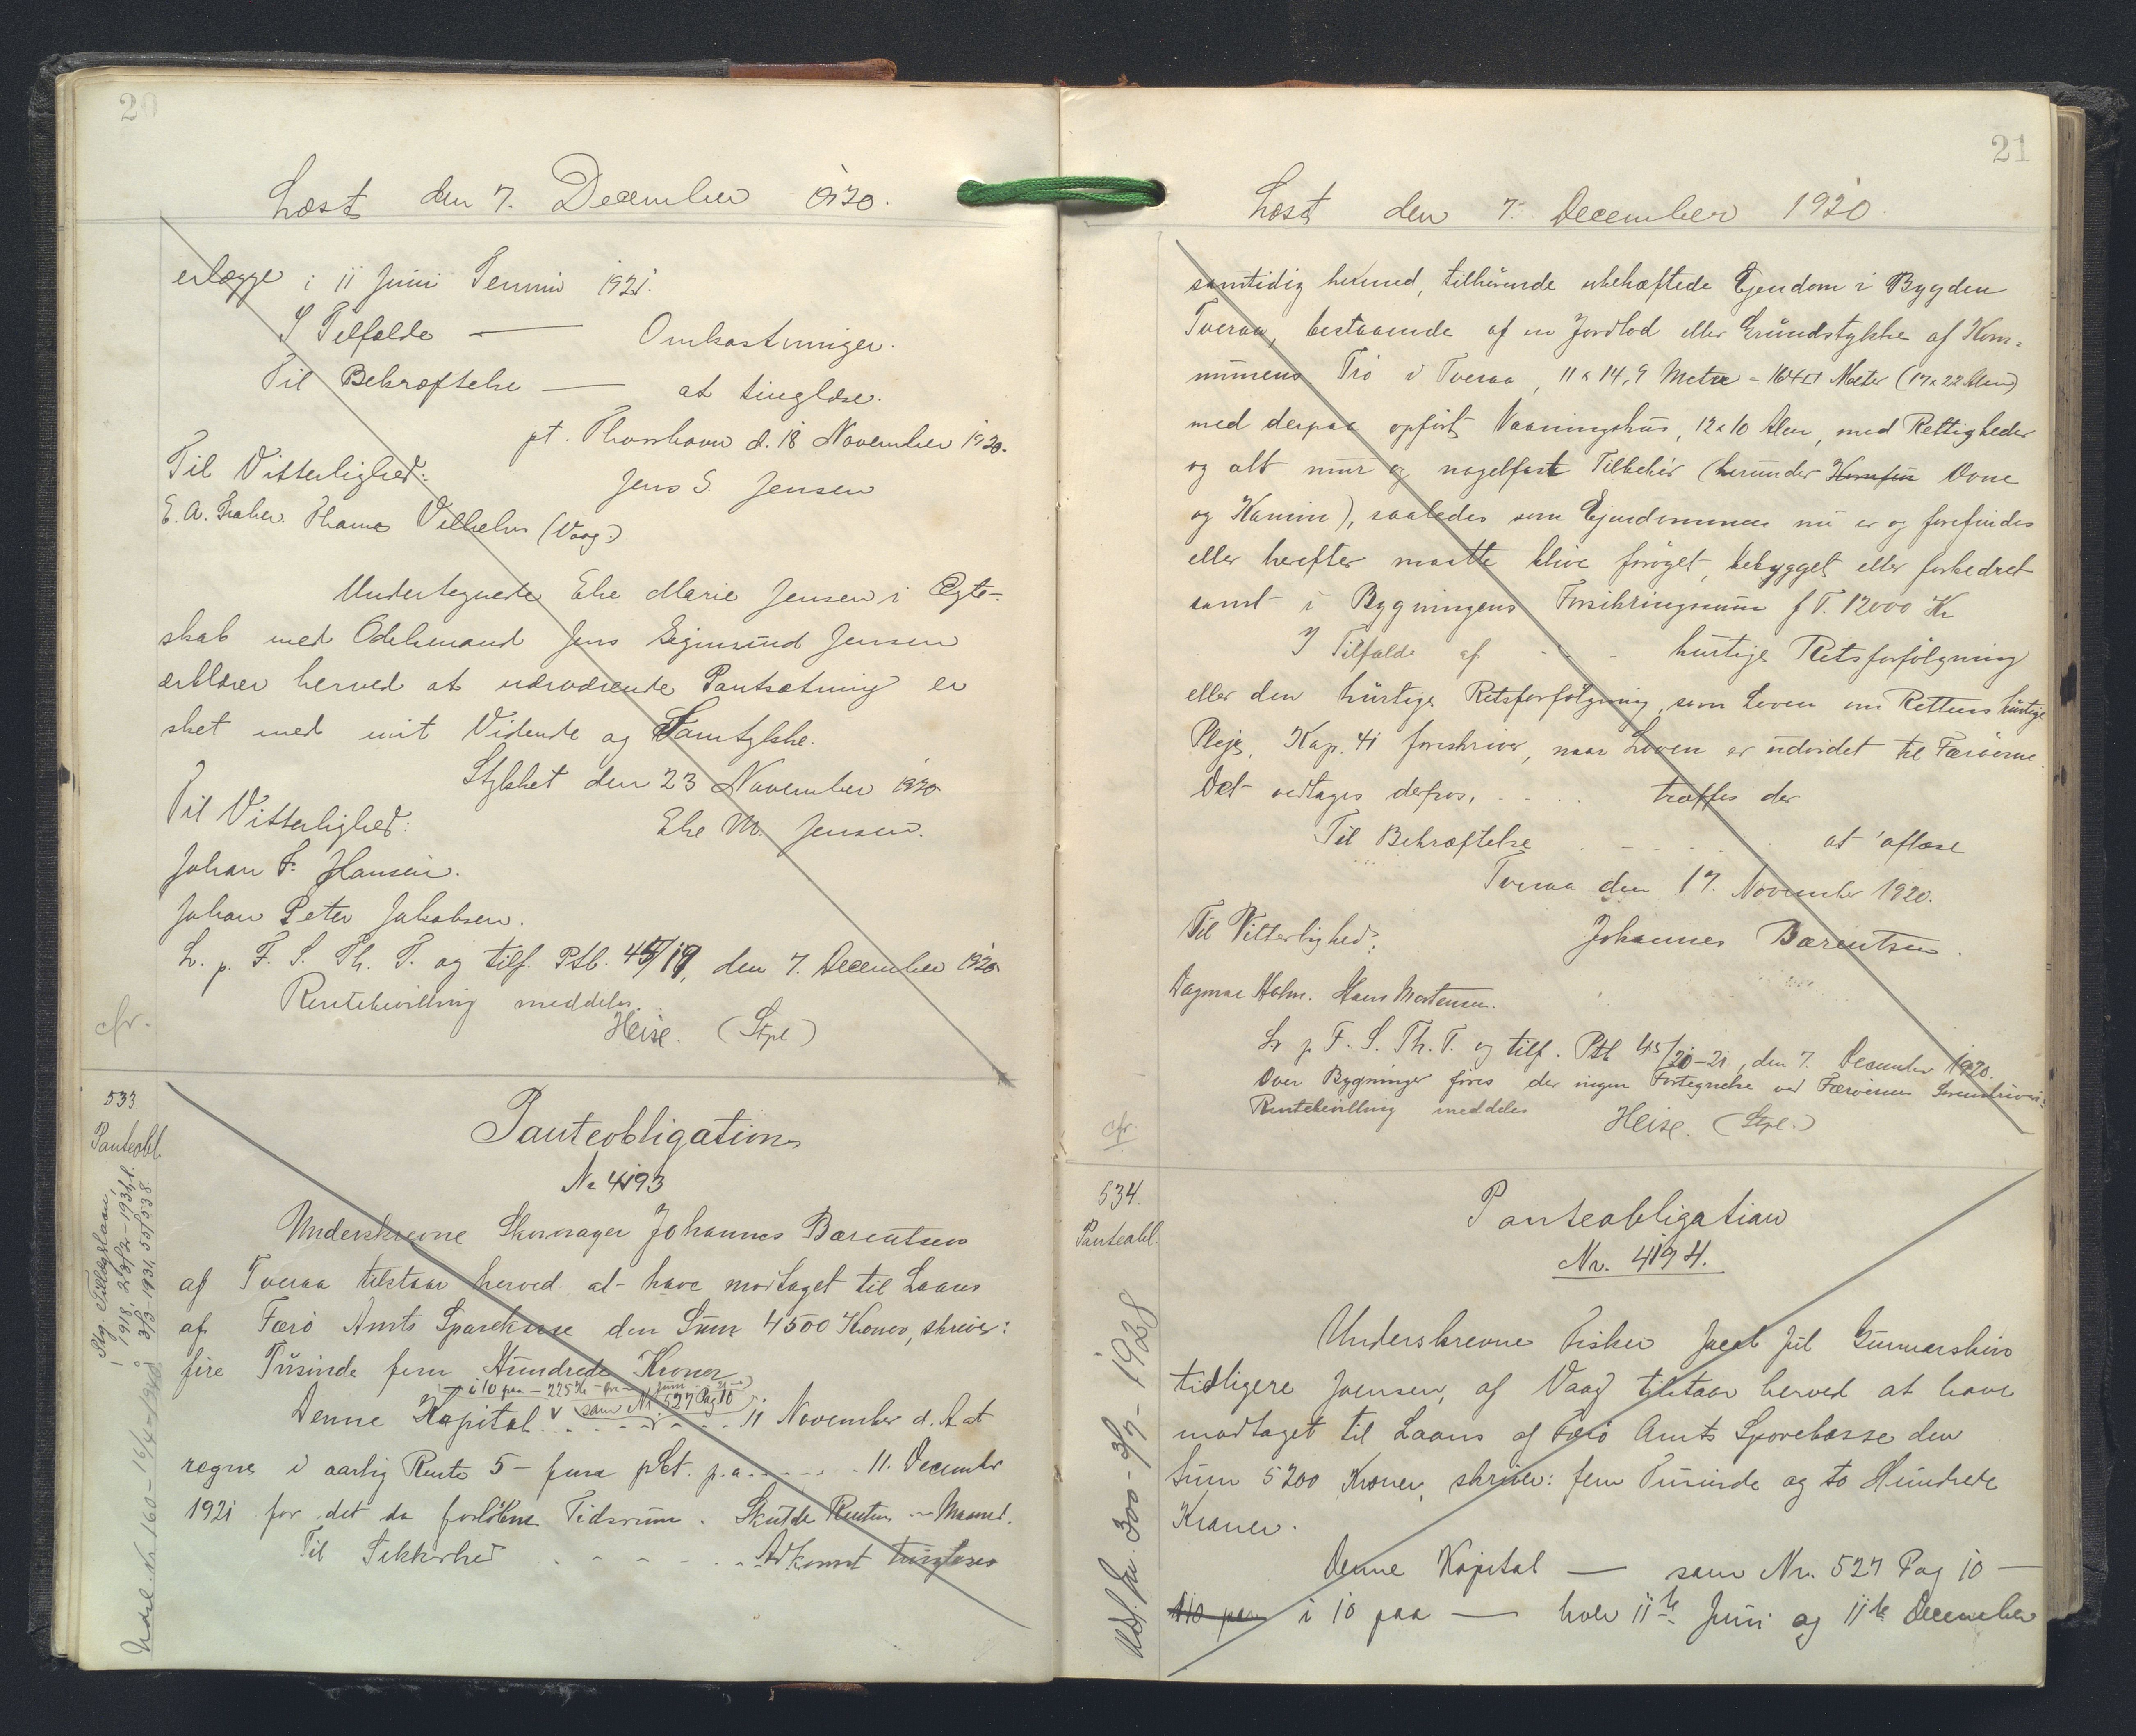 20
Læst den 7. December 1920.
erlægge i 11 Juni Termin 1921.
I Tilfælde — Omkostninger.
Til Bekræftelse — at tinglæse.
pt. Thorshavn d. 18 November 1920.
Til Vitterlighed: Jens S. Jensen
E. A. Vilhelm (Vaag.)
Undertegnede Else Marie Jensen i Ægte-
skab med Odelsmand Jens Sigmund Jensen
erklærer herved at nærværende Pantsætning er
sket med mit Vidende og Samtykke.
Stykket den 23 November 1920
Til Vitterlighed: Else M. Jensen.
Johan F. Hansen.
Johan Peter Jakobsen.
L. p. F. S. Th. T. og tilf. Ptb. 45/19, den 7. December 1920
Rentebevilling meddeles.
cfr. Heise. (Stpl)
533
Panteobl.
Panteobligation
Nr 4193
Underskrevne Skomager Johannes Bærentsen
af Tveraa tilstaar herved at have modtaget til Laans
af Færö Amts Sparekasse den Sum 4500 Kroner, skriver:
fire Tusinde fem Hundrede Kroner
i 10 paa — 225 Kr — Juni
som Nr. 527 Pag 10
Denne Kapital . . . . . 11 November d. A at
regne i aarlig Rente 5 – fem pCt. p. a. . . . . 11. December
1921 for det da forlöbne Tidsrum. Skulde Renten . . Maaned.
Til Sikkerhed . . . . . Adkomst tinglæses
21
Læst den 7. December 1920.
samtidig hermed, tilhörende ubehæftede Ejendom i Bygden
Tveraa, bestaaende af en Jordlod eller Grundstykke af Kom-
munens Trö i Tveraa, 11 x 14,9 Metre = 164 □ Meter (17 x 22 Alen)
med derpaa opfört Vaaningshus, 12 x 10 Alen, med Rettigheder
og alt mur og nagelfast Tilbehör (herunder Ovne
og Kamin), saaledes som Ejendommen nu er og forefindes
eller herefter maatte blive foröget, bebygget eller forbedret
samt i Bygningens Forsikringssum f. T. 12000 Kr
I Tilfælde af . . . hurtige Retsforfölgning
eller den hurtige Retsforfölgning, som Loven om Rettens hurtige
Pleje, Kap. 41 foreskriver, naar Loven er udvidet til Færöerne.
Det vedtages derfor, . . . . træffes der
Til Bekræftelse . . . . . at aflæse
Tveraa den 17. November 1920.
Til Vitterlighed: Johannes Bærentsen.
Dagmar Holm. Hans Mortensen.
L. p. F. S. Th. T. og tilf. Ptb 45/20-21, den 7. December 1920.
Over Bygninger föres der ingen Fortegnelse ved Færöernes Sorenskriveri.
Rentebevilling meddeles
cfr. Heise. (Stpl.)
534.
Panteobl.
Panteobligation
Nr. 4194.
Underskrevne Fisker Jacob Jul Gunnarstein
tidligere Joensen, af Vaag tilstaar herved at have
modtaget til Laans af Færö Amts Sparekasse den
Sum 5200 Kroner, skriver: fem Tusinde og to Hundrede
Kroner.
Denne Kapital — som Nr. 527 Pag 10 —
i 10 paa — hver 11te Juni og 11te December